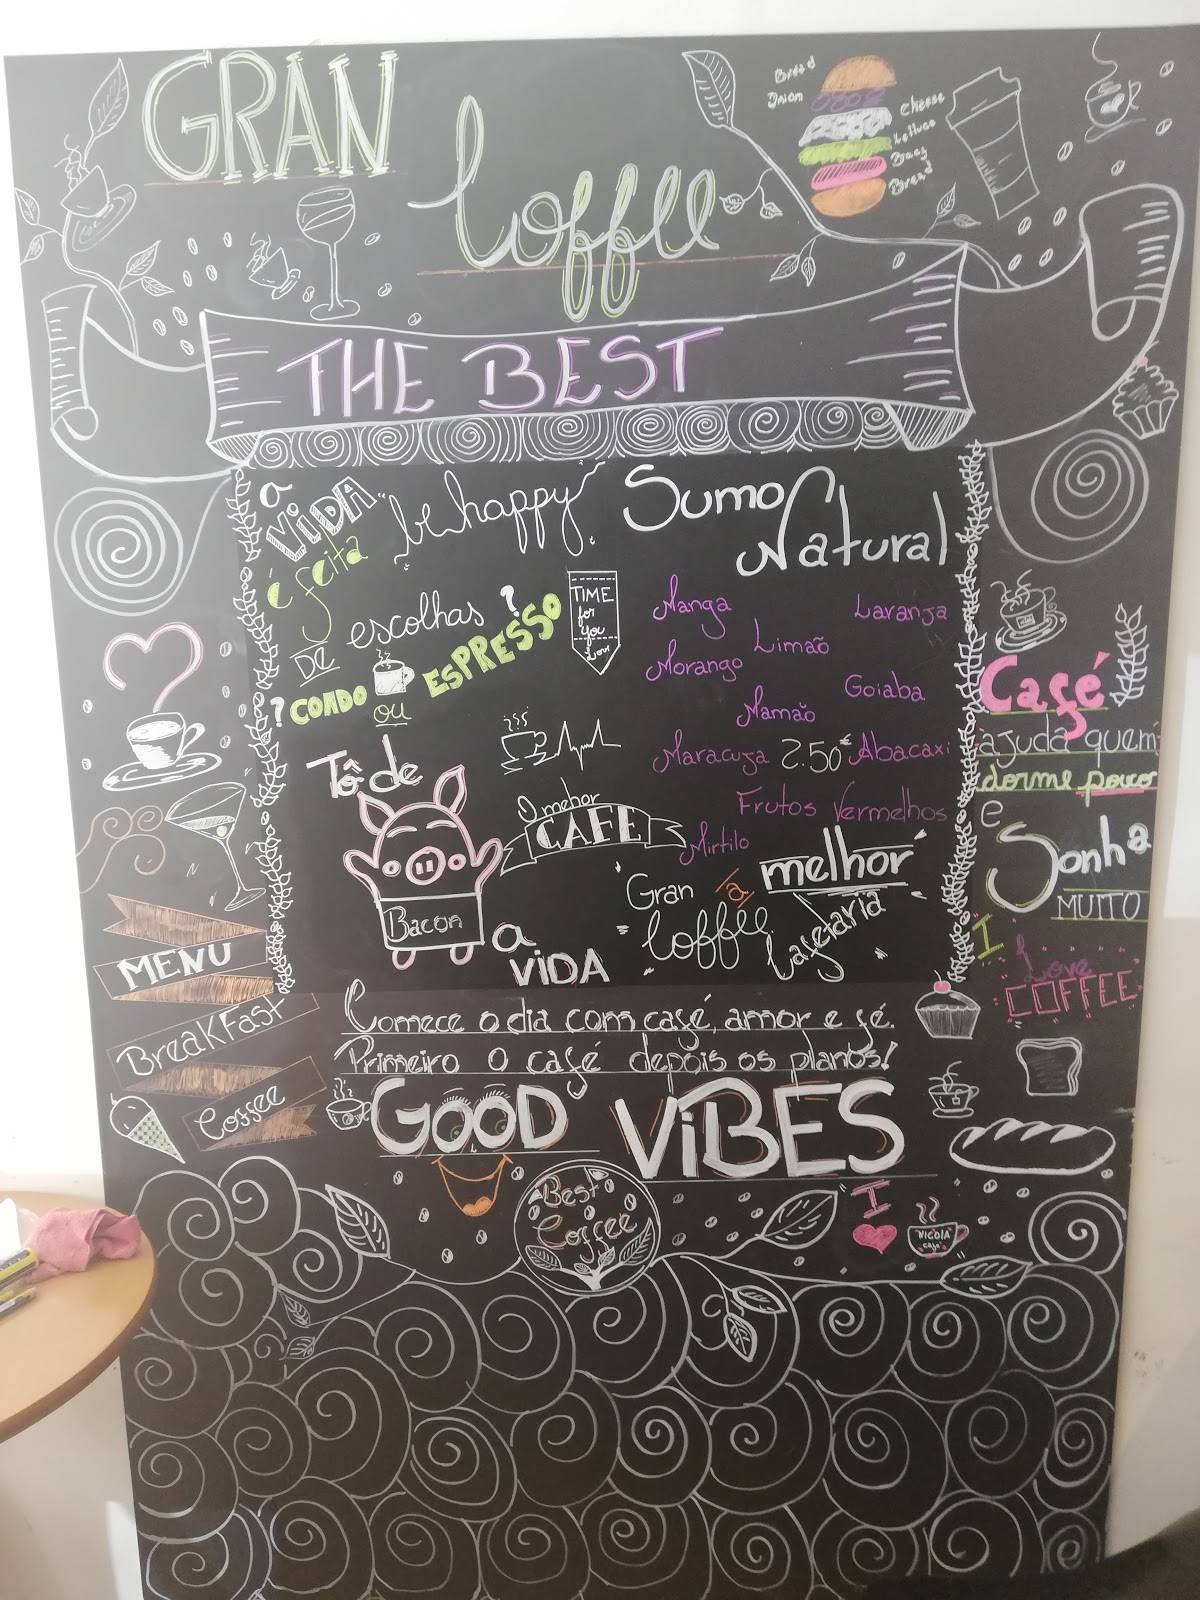 GRAN
Coffee
Bread
Onion
Cheese
Lettuce
Bread
THE BEST
a
VIDA
é feita
DE escolhas
be happy
? CONDO
ou
ESPRESSO ?
TIME
for
you
Love
Sumo
Natural
Manga
Laranja
Limão
Morango
Goiaba
Mamão
Maracuja 2.50€ Abacaxi
Frutos Vermelhos
Mirtilo
Tô de
Bacon
a
VIDA
O mehor
CAFE
Gran
Coffee
a
melhor
Cafetaria
Café
ajuda quem
dorme pouco
e
Sonha
MUITO
I
Love
COFFEE
MENU
BreakFast
Coffee
Comece o dia com café, amor e fé.
Primeiro o café depois os planos!
GOOD VIBES
Best
Coffee
I
NICOLA
Cafe